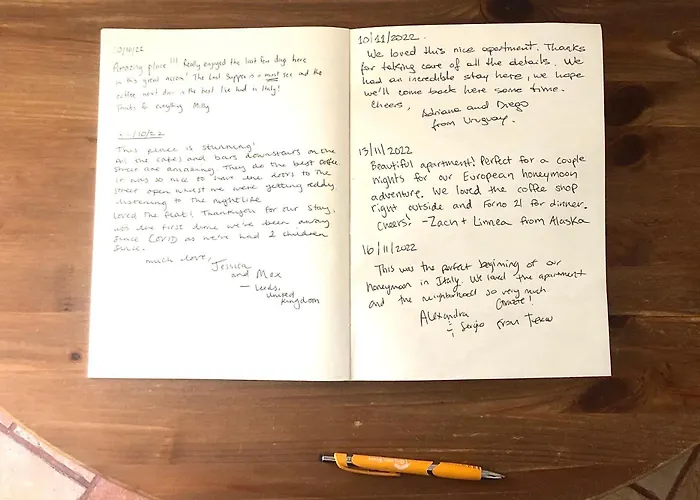 /10/22
Amazing place!!! Really enjoyed the last few days here
in this great Airbnb! The Last Supper is a must see and the
coffee next door is the best I've had in Italy!
Thanks for everything Milly
/10/22
This place is stunning!
All the cafes and bars downstairs on the
street are amazing. They do the best coffee.
It was so nice to have the doors to the
street open whilst we were getting ready,
listening to the nightlife.
Loved the flat! Thankyou for our stay,
was the first time we've been away
since COVID as we've had 2 children
since.
much love,
Jessica
and Max
— Leeds,
United
Kingdom
10/11/2022.
We loved this nice apartment. Thanks
for taking care of all the details. We
had an incredible stay here, we hope
we'll come back here some time.
Cheers,
Adriana and Diego
from Uruguay.
13/11/2022
Beautiful apartment! Perfect for a couple
nights for our European honeymoon
adventure. We loved the coffee shop
right outside and Forno 21 for dinner.
Cheers! -Zach + Linnea from Alaska
16/11/2022
This was the perfect beginning of our
honeymoon in Italy. We loved the apartment
and the neighborhood so very much
Grazie!
Alexandra
Sergio From